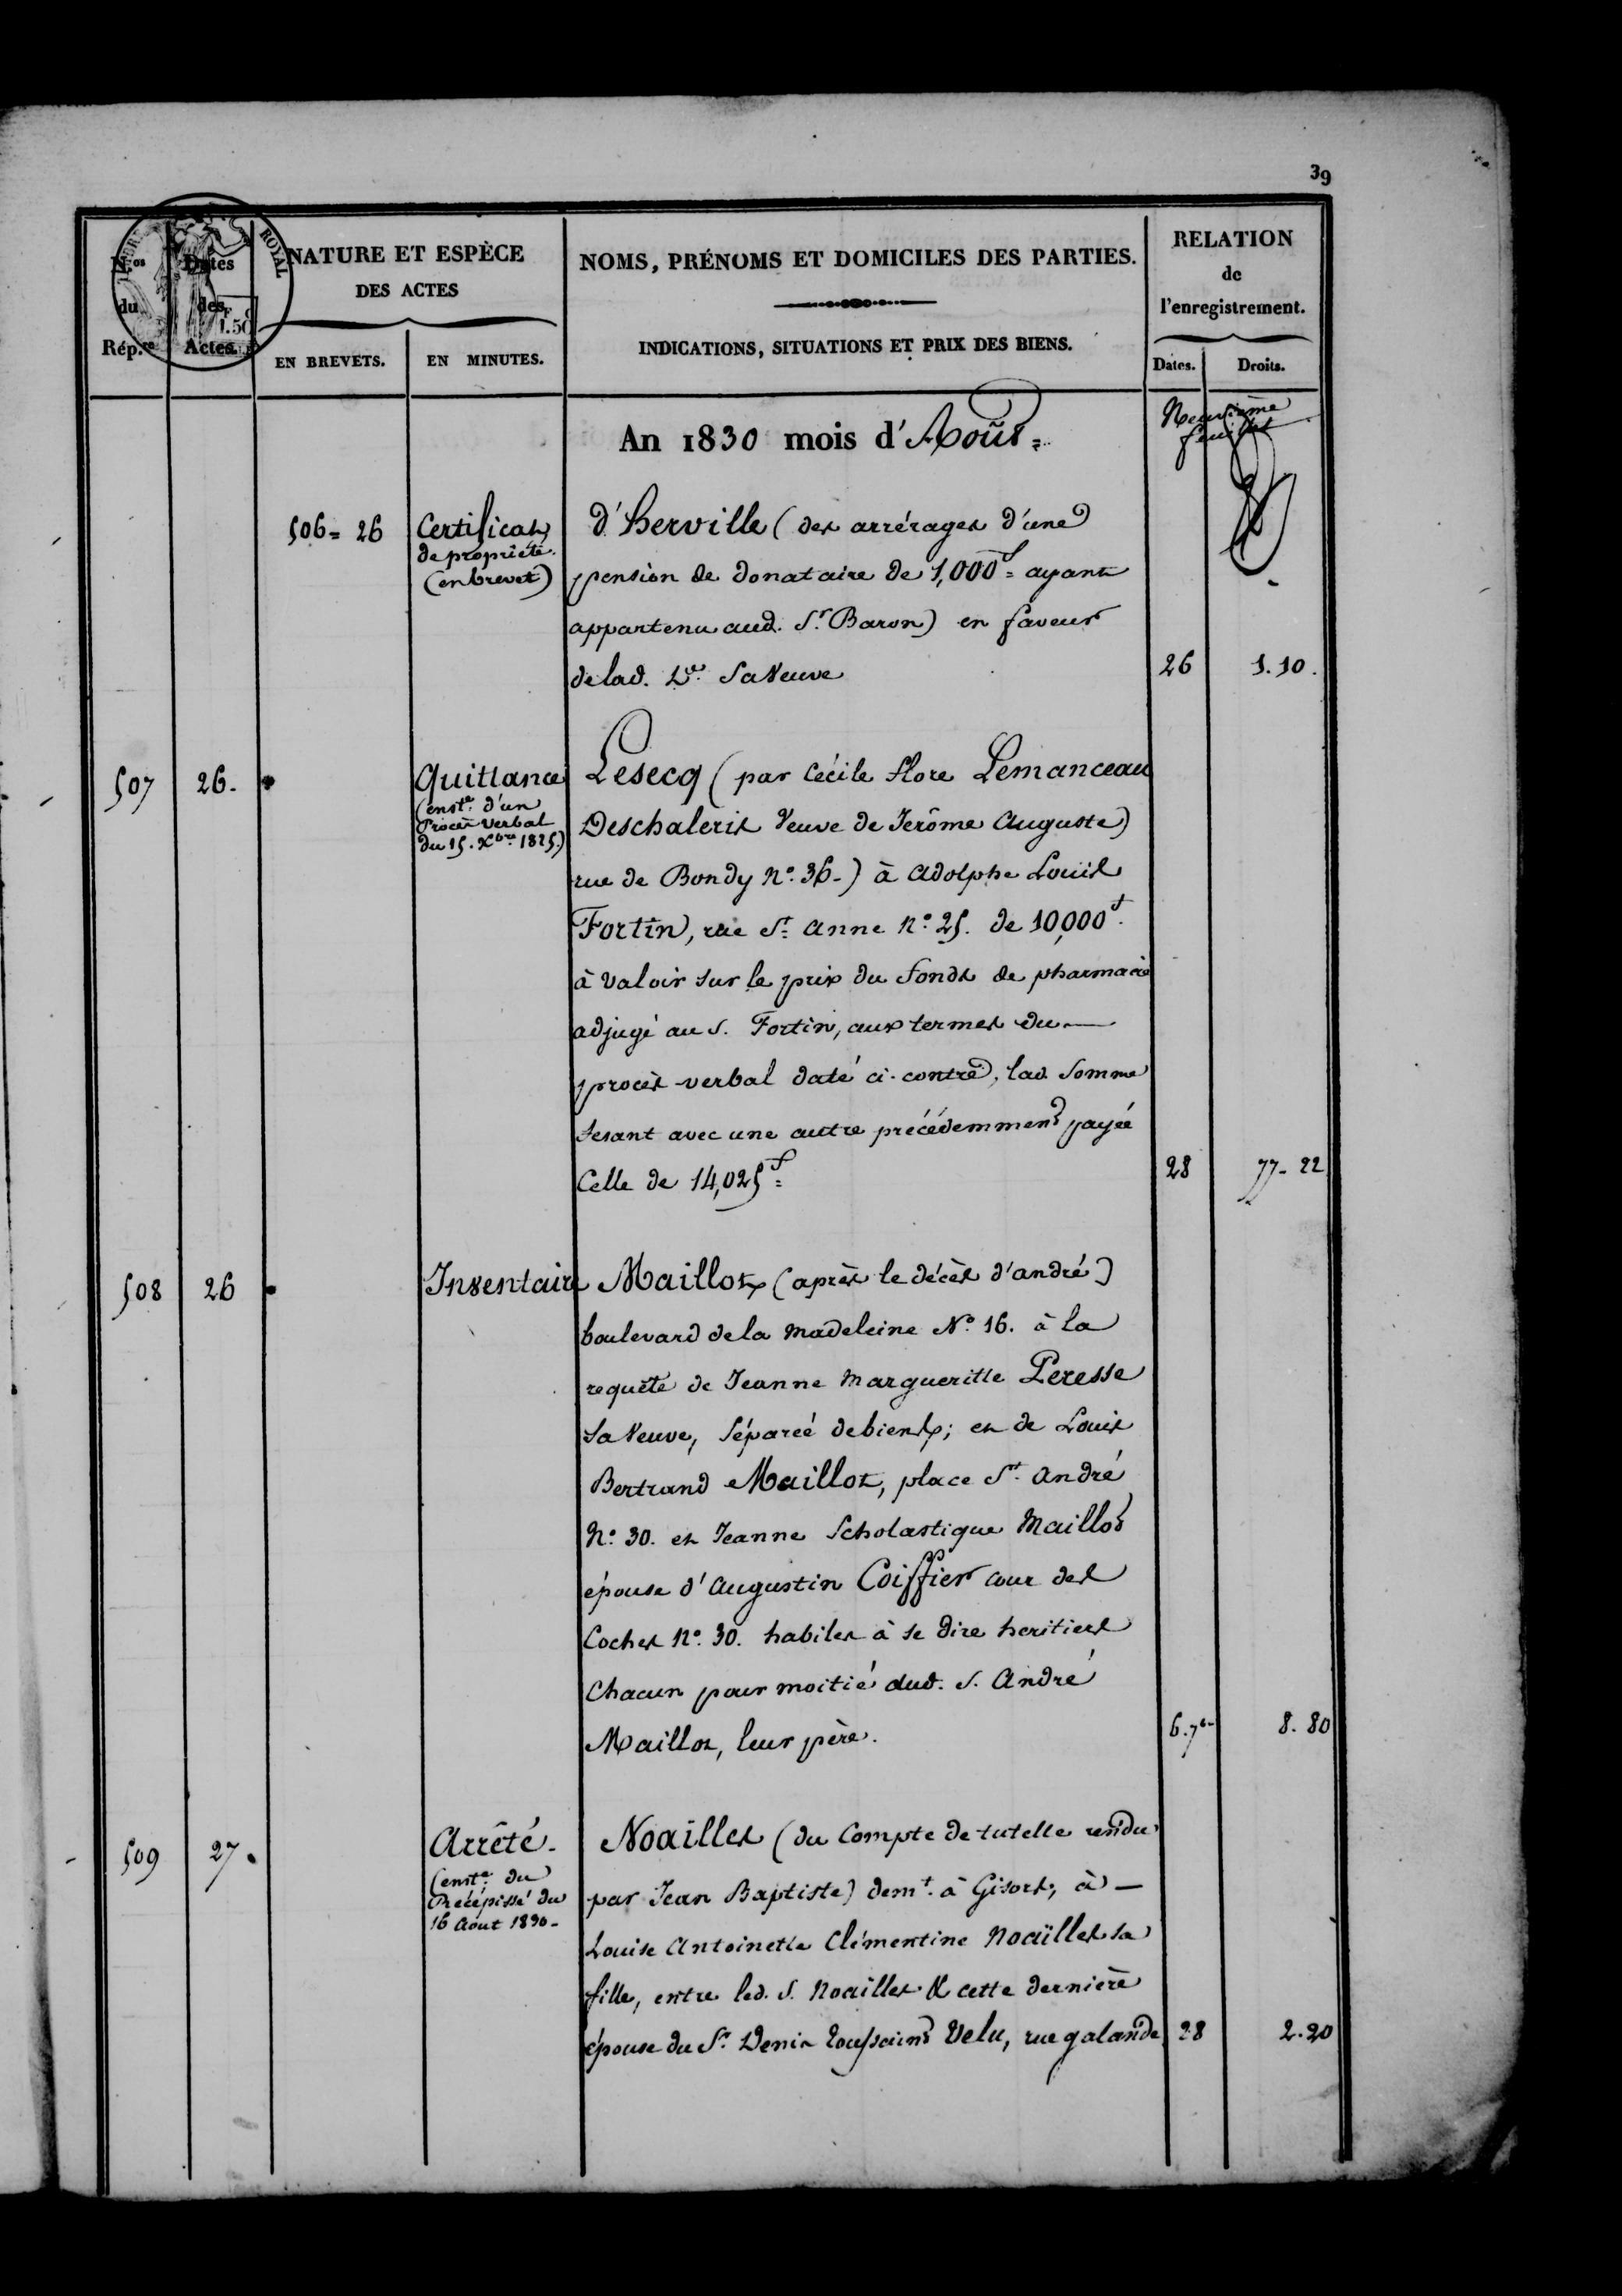 39
N.os du Rép.re
Dates des Actes.
TIMBRE ROYAL
1.50
NATURE ET ESPÈCE
DES ACTES
EN BREVETS.
EN MINUTES.
NOMS, PRÉNOMS ET DOMICILES DES PARTIES.
INDICATIONS, SITUATIONS ET PRIX DES BIENS.
RELATION
de
l'enregistrement.
Dates.
Droits.
An 1830 mois d'Août =
Neuvième
feuillet
506 = 26
Certificat
de propriété.
(en brevet)
d'herville (des arrérages d'une
pension de donataire de 1,000f = ayant
appartenu aud. Sr. Baron) en faveur
de lad. De. Sa Veuve
26 1.10.
507 26.
Quittance
(enste. d'un
Procès verbal
du 15. Xbre. 1825.)
Lesecq (par Cécile flore Lemanceau
Deschaleris Veuve de Jerôme Auguste)
rue de Bondy No. 36-) à Adolphe Louis
Fortin, rue Ste. Anne No. 25. de 10,000f.
à valoir sur le prix du fonds de pharmacie
adjugé au S. Fortin, aux termes du —
procès-verbal daté ci-contre, lad. Somme
fesant avec une autre précédemment payée
Celle de 14,025f =
28 77-22
508 26
Inventaire
Maillot (après le décès d'andré)
boulevard de la Madeleine No. 16. à la
requête de Jeanne Margueritte Peresse
Sa Veuve, Séparée de biens; et de Louis
Bertrand Maillot, place St. André
No. 30. et Jeanne Scholastique Maillot
épouse d'Augustin Coiffier cour des
Coches No. 30. habiles à se dire heritiers
Chacun pour moitié dud. S. André
Maillot, leur père.
6.7e- 8.80
509 27.
Arrêté.
(enste. du
Récépissé du
16 Août 1830-
Noailles (du Compte de tutelle rendu
par Jean Baptiste) demt. à Gisors; à —
Louise Antoinette Clémentine Noaïlles sa
fille, entre led. S. Noailles & cette dernière
épouse du Sr. Denis toussaint Velu, rue galande
28 2.20